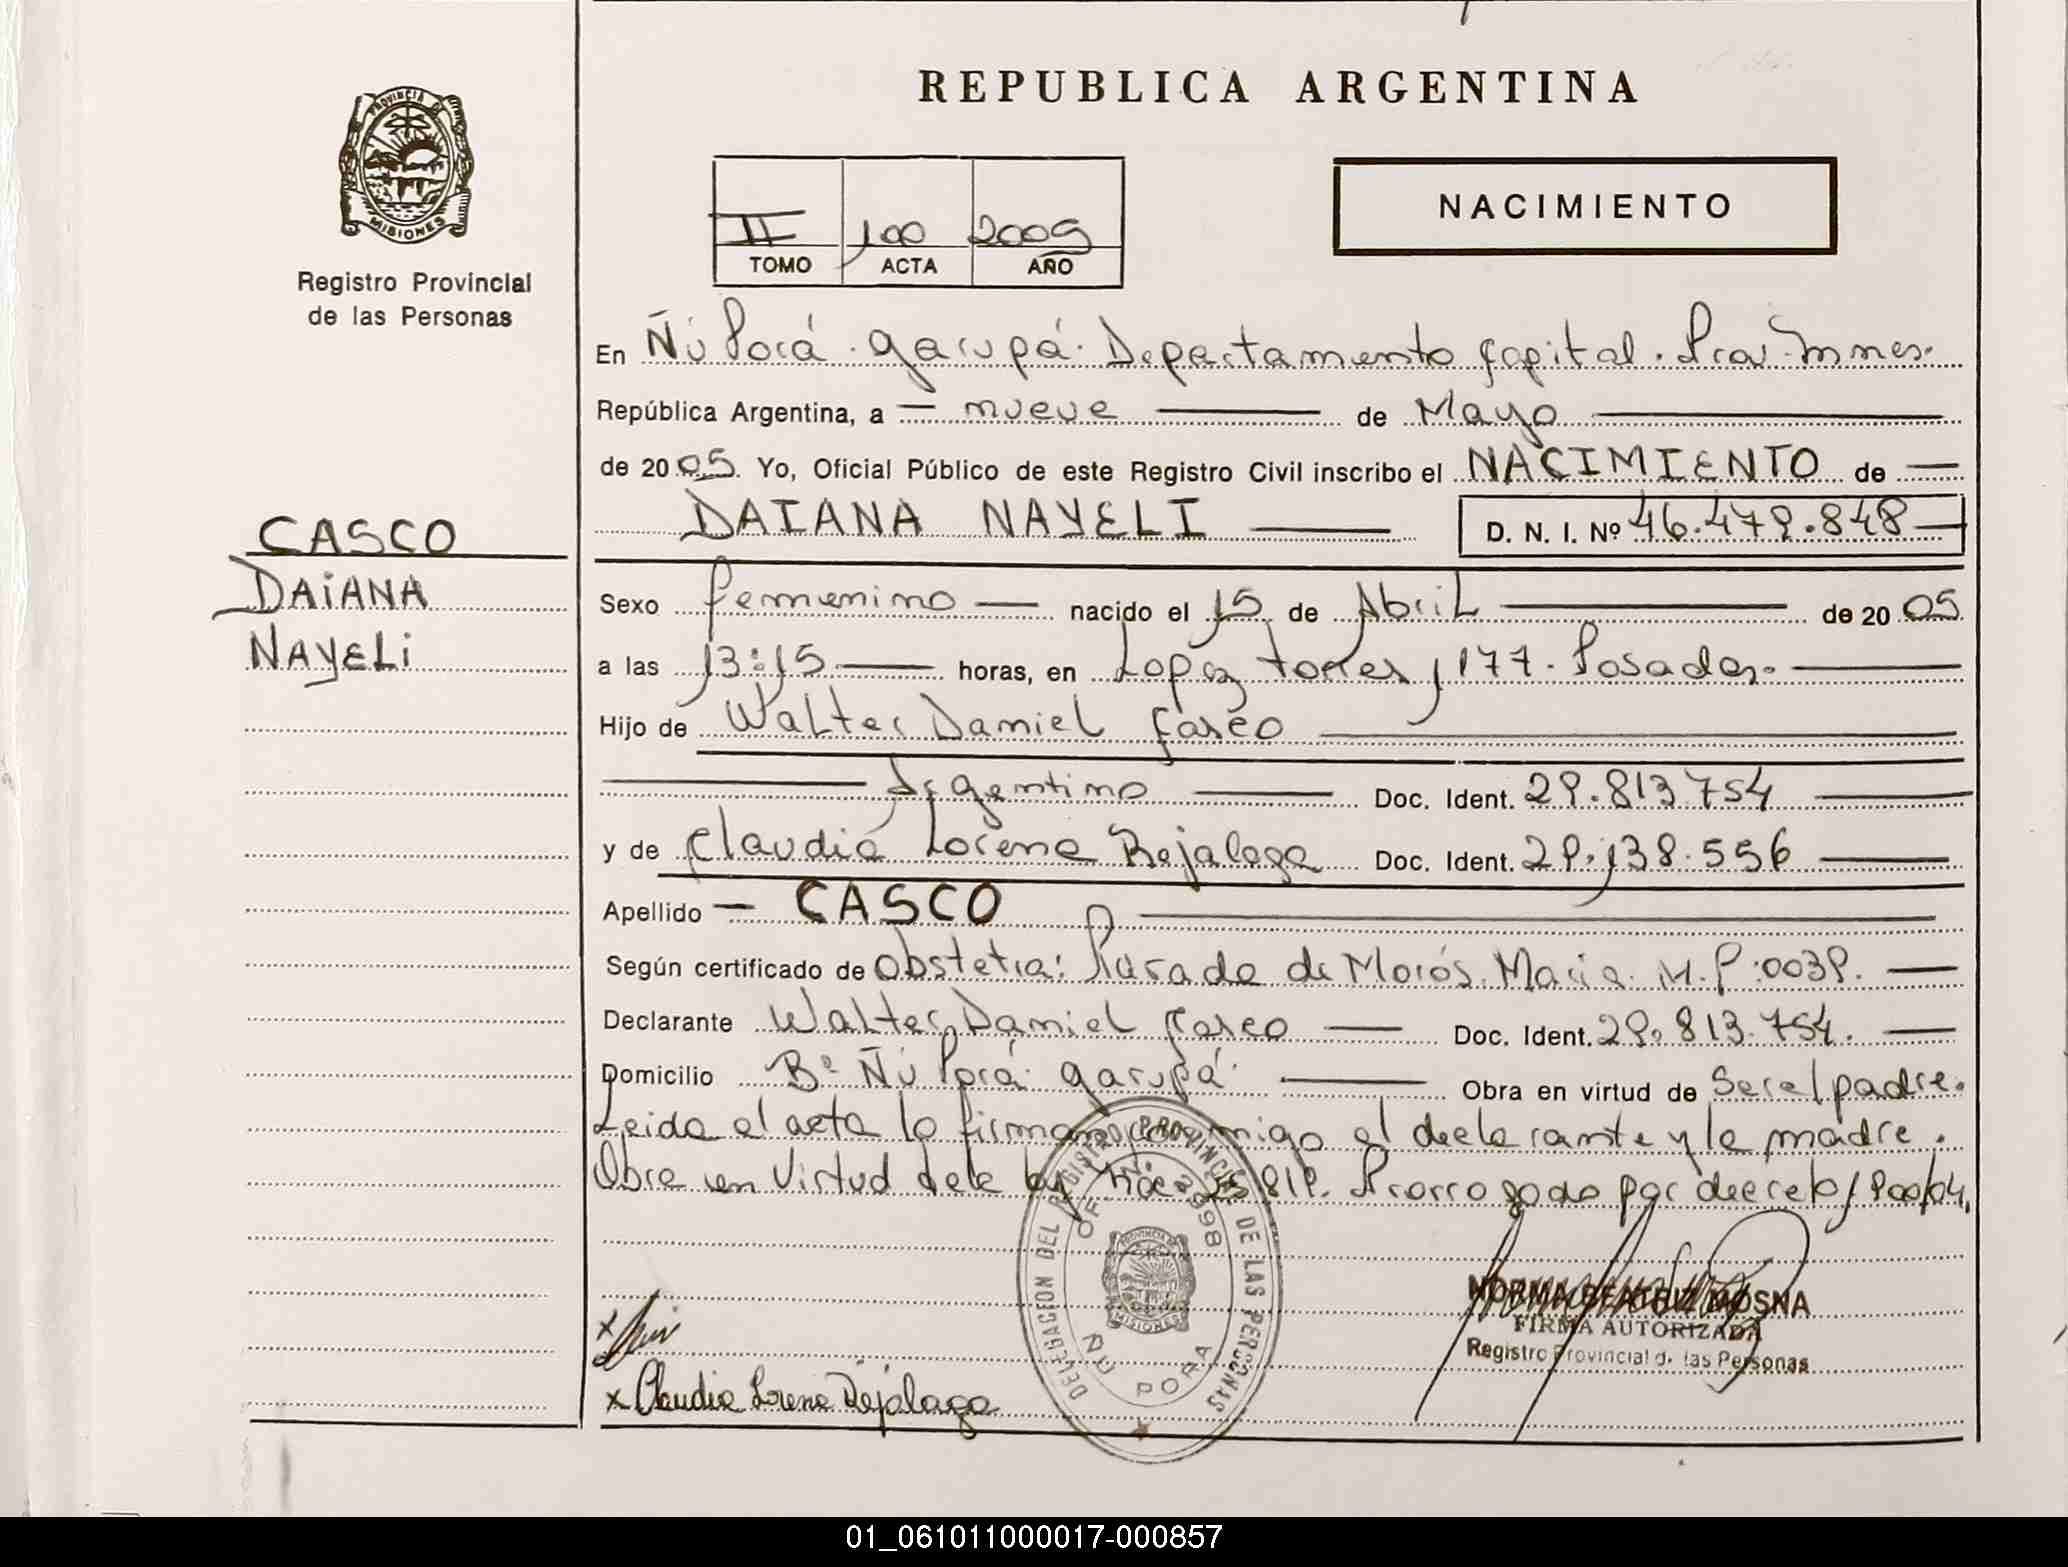 REPUBLICA ARGENTINA
PROVINCIA DE MISIONES
Registro Provincial
de las Personas
II 100 2005
TOMO ACTA AÑO
NACIMIENTO
En Ñu Porá. Garupá. Departamento Capital. Prov. Mnes.
República Argentina, a — nueve — de Mayo —
de 2005. Yo, Oficial Público de este Registro Civil inscribo el NACIMIENTO de —
DAIANA NAYELI — D. N. I. Nº 46.479.848 —
CASCO
DAIANA
NAYELI
Sexo femenino — nacido el 15 de Abril — de 2005
a las 13:15 — horas, en Lopez Torres 1177. Posadas. —
Hijo de Walter Daniel Casco —
— Argentino — Doc. Ident. 29.813.754 —
y de Claudia Lorena Rejalaga Doc. Ident. 29.138.556 —
Apellido — CASCO —
Según certificado de Obstetra: de Morós María M.P:0039. —
Declarante Walter Daniel Casco — Doc. Ident. 29.813.754. —
Domicilio Bº Ñu Porá Garupá. — Obra en virtud de Ser el padre.
Leida el acta la firman conmigo el declarante y la madre.
Obra en Virtud de la ley 25819. Prorrogado por decreto 1900/04.
DELEGACION DEL REGISTRO PROVINCIAL DE LAS PERSONAS
OF. 2998
PROVINCIA DE MISIONES
ÑU PORA
NORMA BEATRIZ MOSNA
FIRMA AUTORIZADA
Registro Provincial d. las Personas
x
x Claudia Lorena Rejalaga
01_061011000017-000857